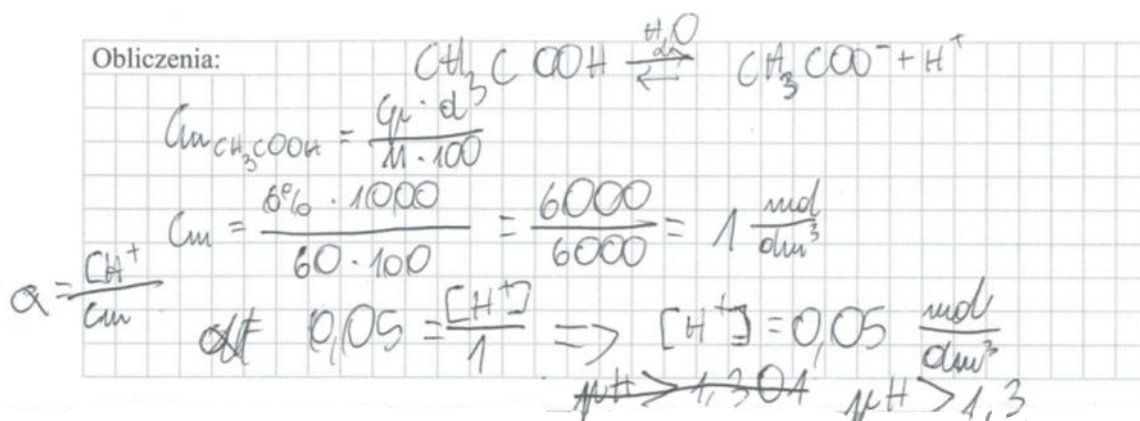 Obliczenia:
CH₃COOH ⇌ CH₃COO⁻ + H⁺
H₂O
Cm CH₃COOH = Cp · d / M · 100
Cm = 6% · 1000 / 60 · 100 = 6000 / 6000 = 1 mol/dm³
α = CH⁺ / Cm
0,05 = [H⁺] / 1 => [H⁺] = 0,05 mol/dm³
pH > 1,301 pH > 1,3